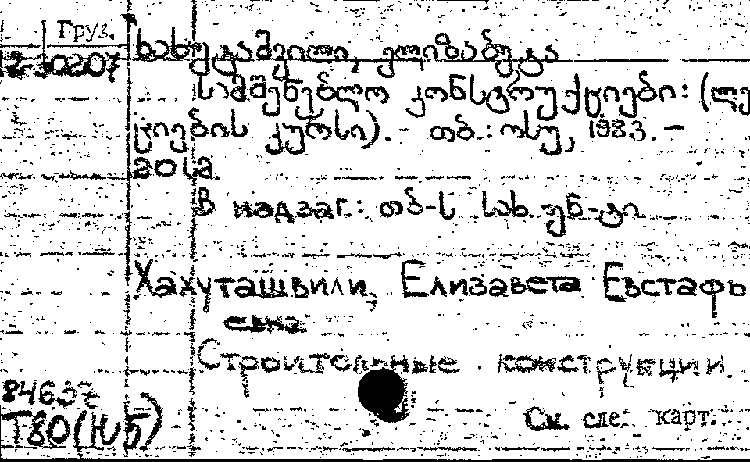 Груз.
2-30207
ხახუტაშვილი, ელიზაბეტა
სამშენებლო კონსტრუქციები: (ლე
ქციების კურსი). - თბ.: თსუ, 1983. -
201 გ.
В надзаг.: თბ-ს სახ. უნ-ტი.
Хахуташвили, Елизавета Евстафь
евна
Строительные конструкции.
84637
Т80(Ю5)
См. след. карт.